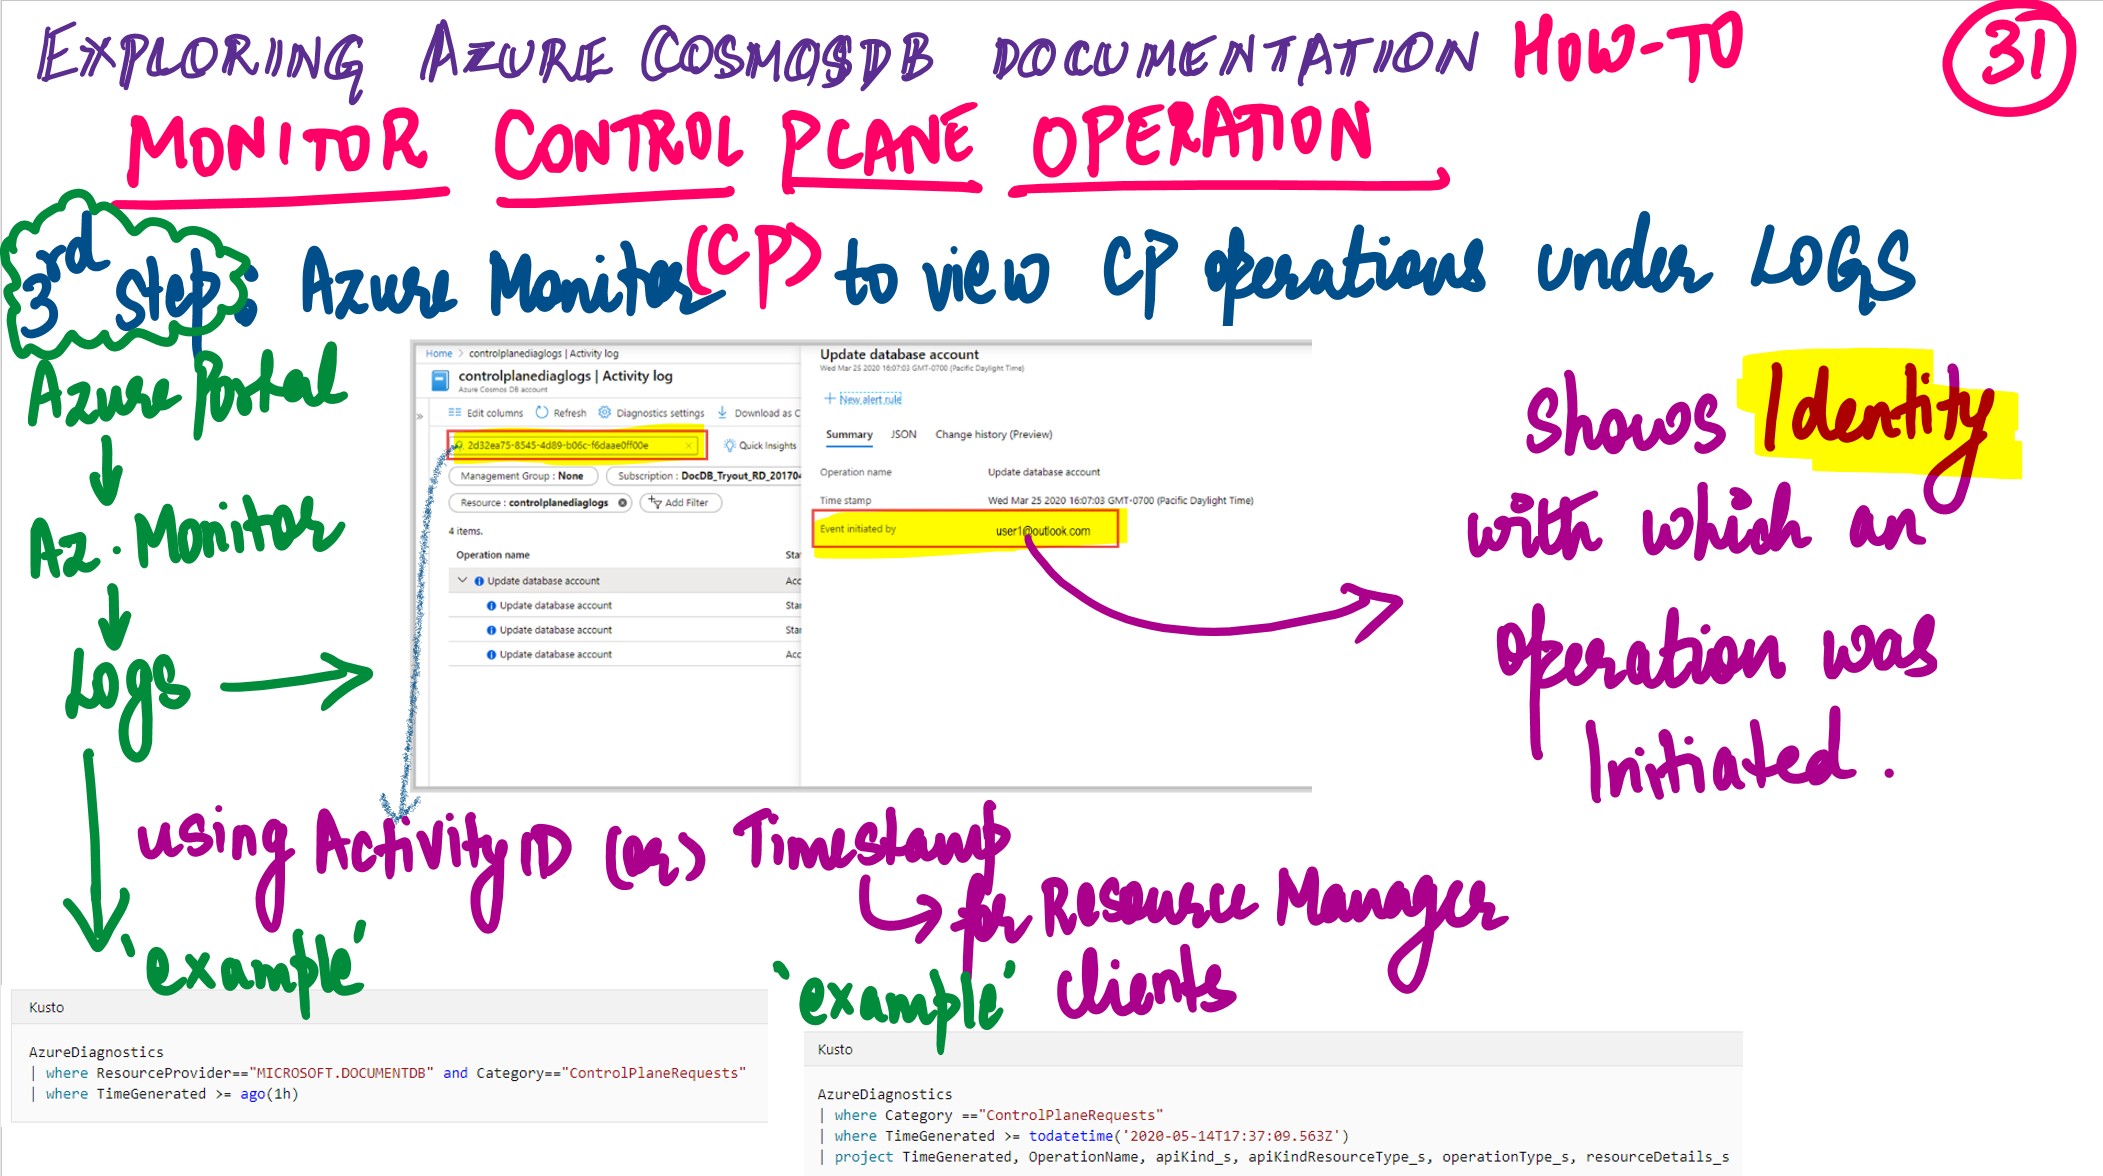 EXPLORING AZURE COSMOSDB DOCUMENTATION HOW-TO
31
MONITOR CONTROL PLANE OPERATION
3rd Step: Azure Monitor (CP) to view CP operations under LOGS
Azure Portal
Az. Monitor
Logs
Home > controlplanediaglogs | Activity log
controlplanediaglogs | Activity log
Azure Cosmos DB account
Edit columns Refresh Diagnostics settings Download as C
2d32ea75-8545-4d89-b06c-f6daae0ff00e Quick Insights
Management Group : None Subscription : DocDB_Tryout_RD_201704
Resource : controlplanediaglogs Add Filter
4 items.
Operation name Sta
Update database account Acc
Update database account Sta
Update database account Sta
Update database account Acc
Update database account
Wed Mar 25 2020 16:07:03 GMT-0700 (Pacific Daylight Time)
New alert rule
Summary JSON Change history (Preview)
Operation name Update database account
Time stamp Wed Mar 25 2020 16:07:03 GMT-0700 (Pacific Daylight Time)
Event initiated by user1@outlook.com
Shows Identity
with which an
operation was
Initiated.
using ActivityID (or) Timestamp
for Resource Manager
clients
'example'
Kusto
AzureDiagnostics
| where ResourceProvider=="MICROSOFT.DOCUMENTDB" and Category=="ControlPlaneRequests"
| where TimeGenerated >= ago(1h)
'example'
Kusto
AzureDiagnostics
| where Category =="ControlPlaneRequests"
| where TimeGenerated >= todatetime('2020-05-14T17:37:09.563Z')
| project TimeGenerated, OperationName, apiKind_s, apiKindResourceType_s, operationType_s, resourceDetails_s